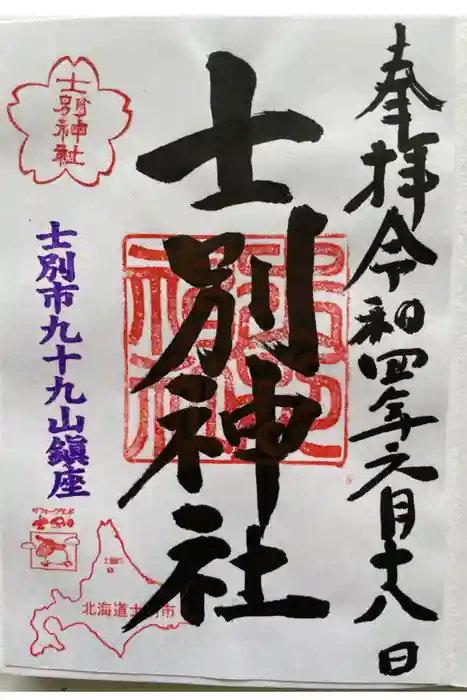 奉拝令和四年六月十八日
士別神社
士別神社
士別市九十九山鎮座
北海道士別市